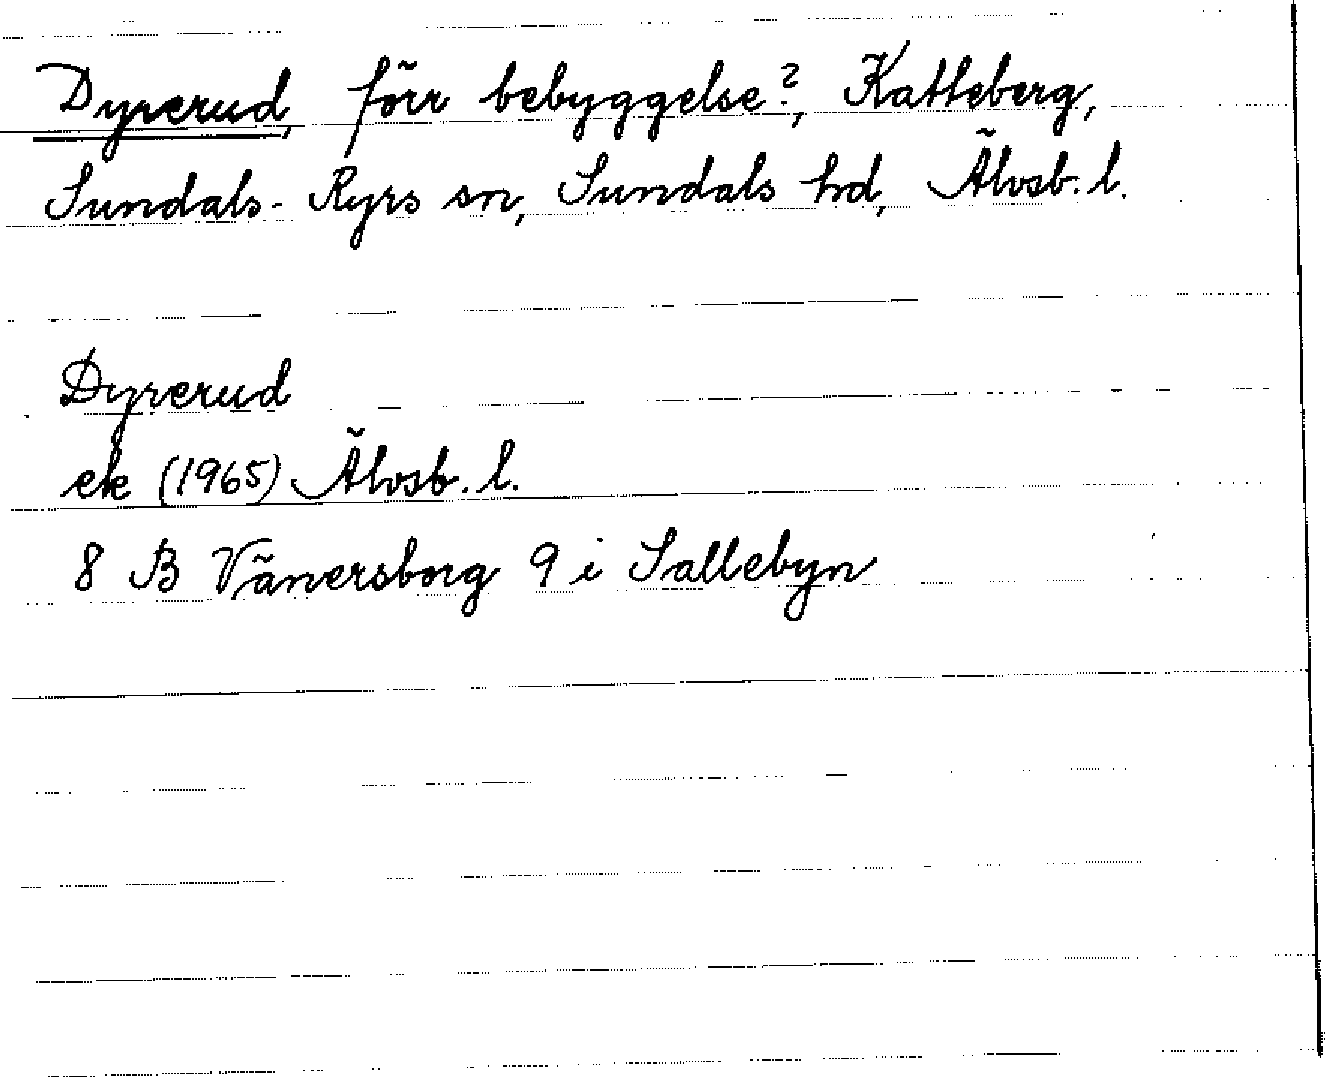 Dyrerud, förr bebyggelse?, Katteberg,
Sundals-Ryrs sn, Sundals hd, Älvsb. l.
Dyrerud
ek (1965) Älvsb. l.
8 B Vänersborg 9 i Sallebyn